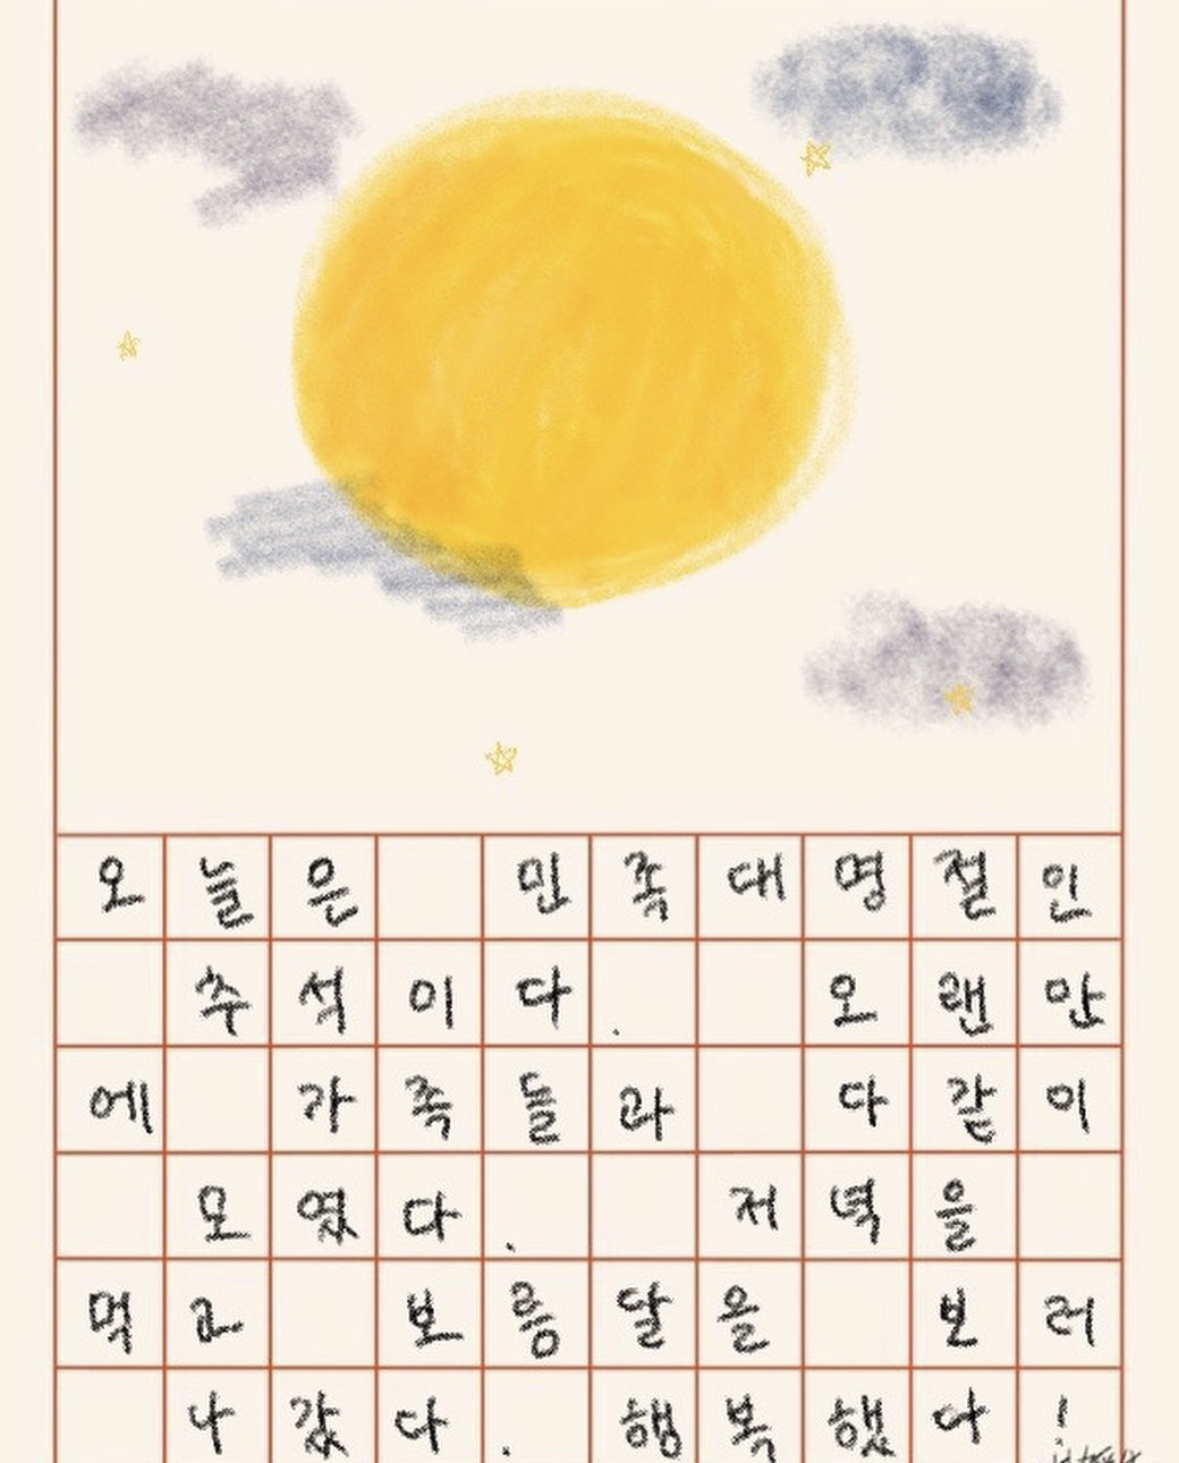 오늘은 민족대명절인
추석이다. 오랜만
에 가족들과 다같이
모였다. 저녁을
먹고 보름달을 보러
나갔다. 행복했다!